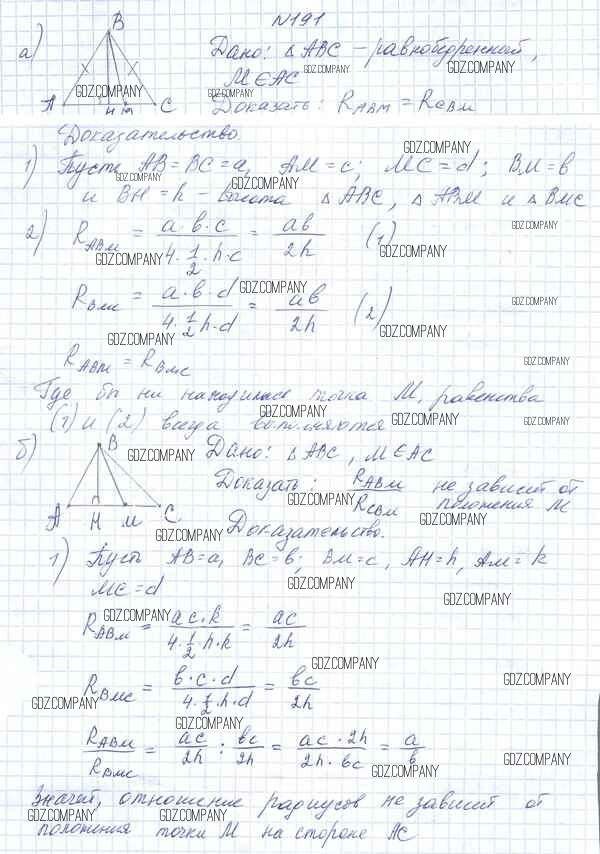 №191
а)
B
A
H
M
C
Дано: △ABC – равнобедренный,
M∈AC
Доказать: R_ABM = R_CBM
Доказательство
1) Пусть AB=BC=a, AM=c; MC=d; BM=b
и BH=h – высота △ABC, △ABM и △BMC
2) R_ABM = a·b·c / 4·1/2·h·c = ab / 2h (1)
R_BMC = a·b·d / 4·1/2 h·d = ab / 2h (2)
R_ABM = R_BMC
Где бы ни находилась точка M, равенства
(1) и (2) всегда выполняются
б)
B
A
H
M
C
Дано: △ABC, M∈AC
Доказать: R_ABM / R_CBM не зависит от
положения M
Доказательство.
1) Пусть AB=a, BC=b; BM=c, AH=h, AM=k
MC=d
R_ABM = ac·k / 4·1/2·h·k = ac / 2h
R_BMC = b·c·d / 4·1/2·h·d = bc / 2h
R_ABM / R_BMC = ac / 2h : bc / 2h = ac·2h / 2h·bc = a / b
Значит, отношение радиусов не зависит от
положения точки M на стороне AC
GDZ.COMPANY